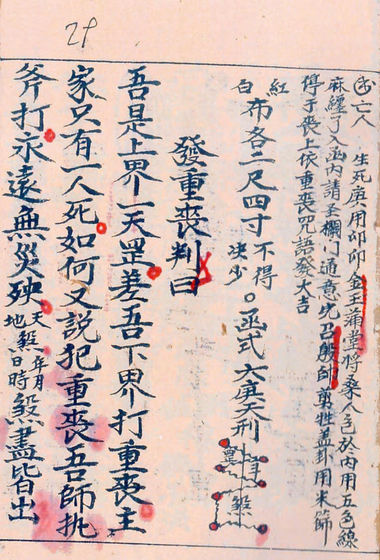 29
亡人 生死庚用叩叩金玉滿堂將桑人包於內用五色線
麻纏了入函內請至欄门通意先召殷師牲蓋卦用米篩
停于喪上依重喪咒語發大吉
紅白布各二尺四寸不得决少。函式六庚天刑
發重喪判曰
吾是上界一天罡差吾下界打重喪主
家只有一人死如何又説犯重喪吾師执
斧打永遠無災殃天殺年月地殺日時煞盡皆出